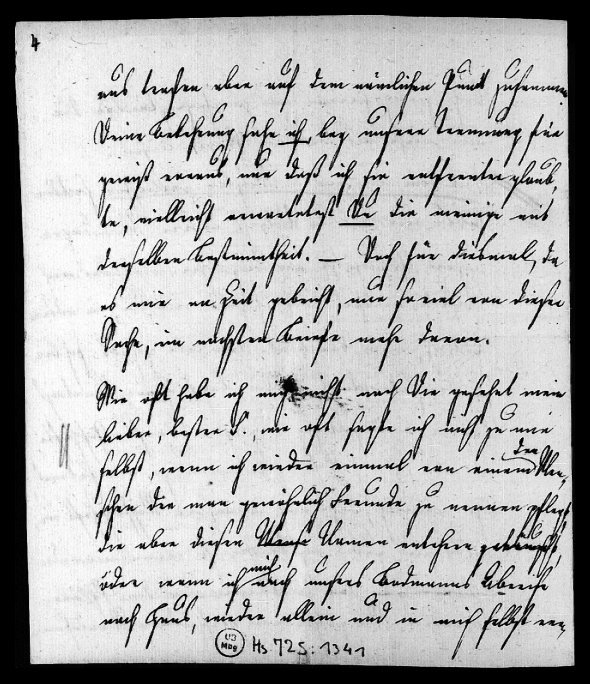 4
uns trafen aber auf dem nämlichen Punkt zusammen.
Deine Bekehrung sahe ich bey unserer Trennung für
gewiß voraus, nur daß ich sie entfernter glaub,
te, vielleicht erwartetest Du die meinige mit
derselben Bestimmtheit. — Doch für diesmal, da
es mir an Zeit gebricht, nur so viel von dieser
Sache, im nächsten Briefe mehr davon.
Wie oft habe ich mich nicht nach Dir gesehnt mein
lieber, bester S., wie oft sagte ich nicht zu mir
selbst, wenn ich wieder einmal von einem der Men,
schen die man gewöhnlich Freunde zu nennen pflegt
die aber diesen Namen entehren
oder wenn ich mich nach unsers Bodmanns Abreise
nach Haus, wieder allein und in mich selbst ver,
UB
Mbg
Hs 725:1341